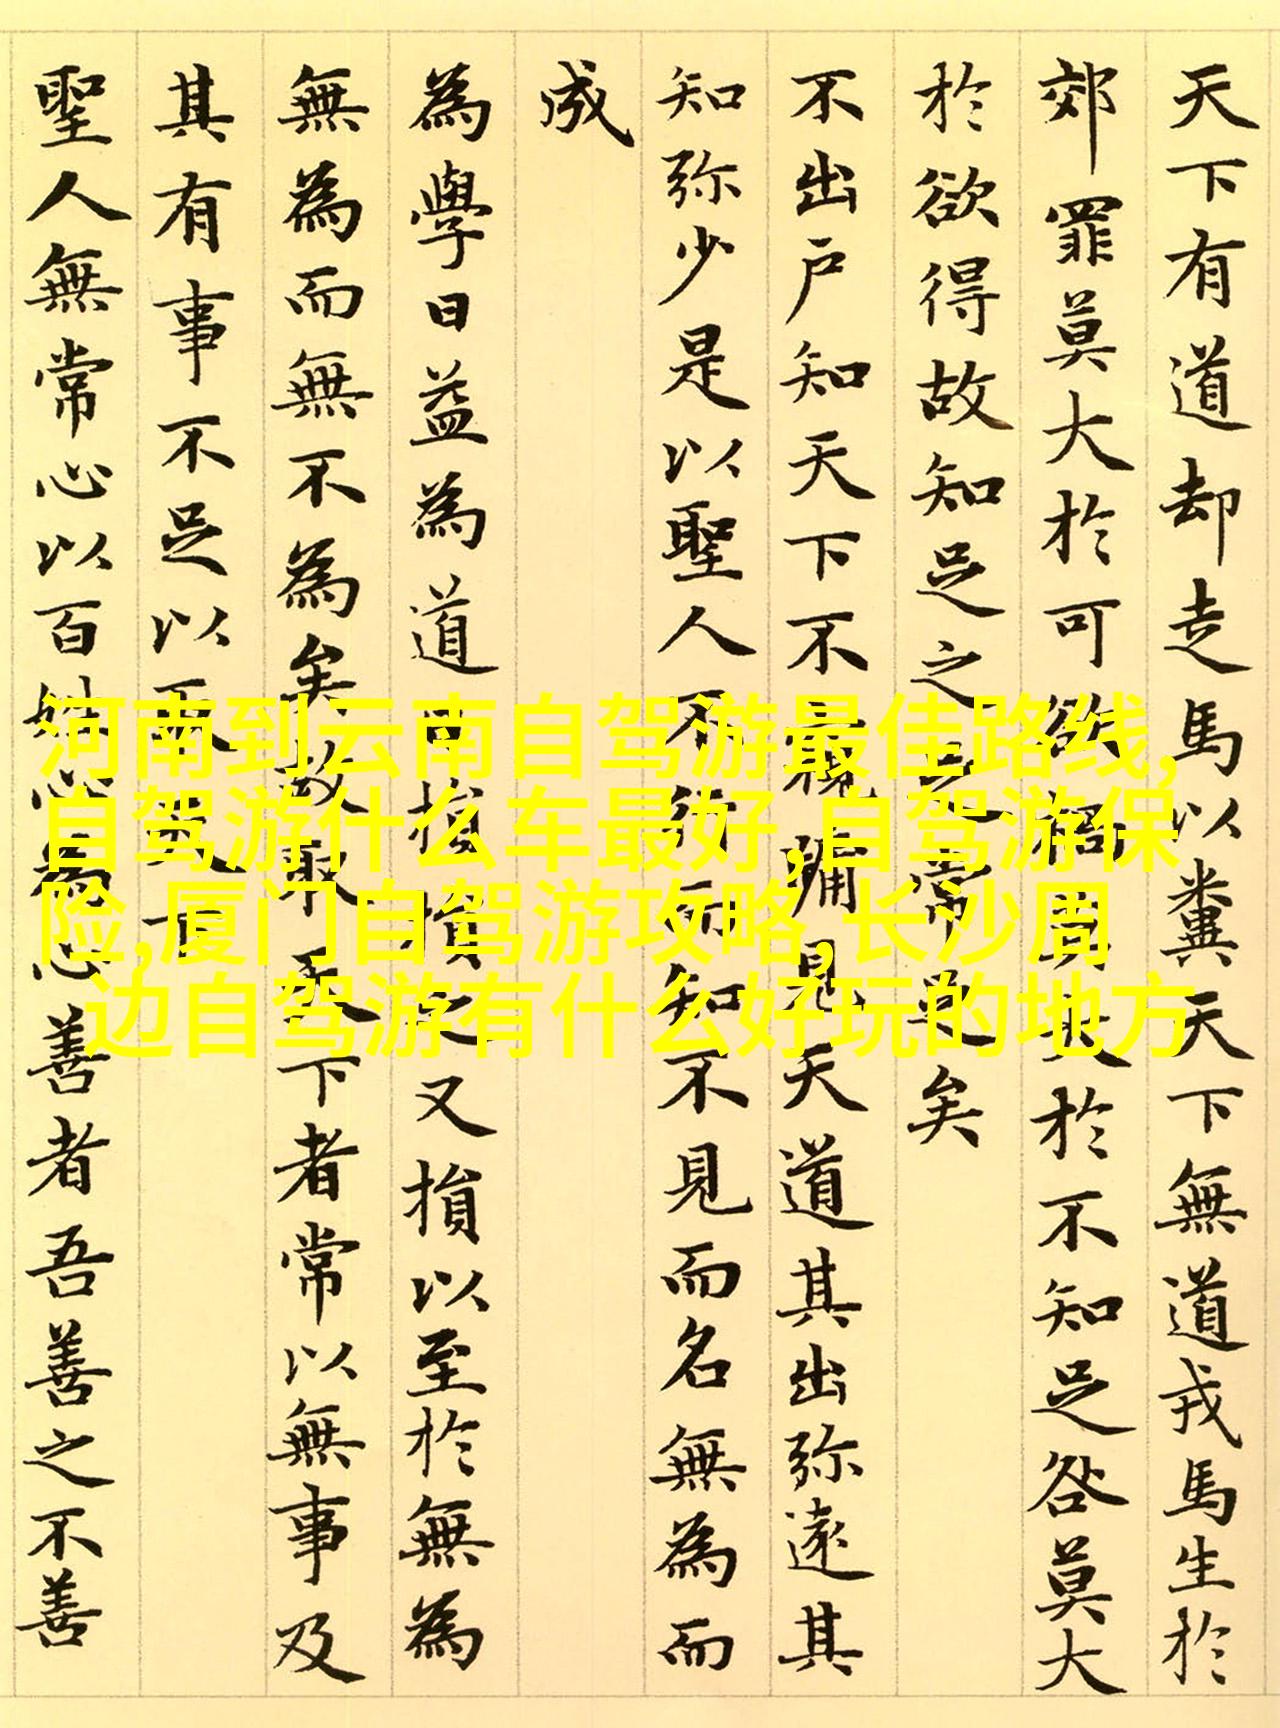 天下有道却走馬以糞天下無道戎馬生於
郊罪莫大於可欲禍莫大於不知足咎莫大
於欲得故知足之足常足矣
不出户知天下不窺牖見天道其出弥遠其
知弥少是以聖人不行而知不見而名無為而
成
為學日益為道日損損之又損以至於無為
無為而無不為矣故取天下者常以無事及
其有事不足以取天下
聖人無常心以百姓心為心善者吾善之不善
河南到云南自驾游最佳路线,
自驾游什么车最好,自驾游保
险,厦门自驾游攻略,长沙周
边自驾游有什么好玩的地方